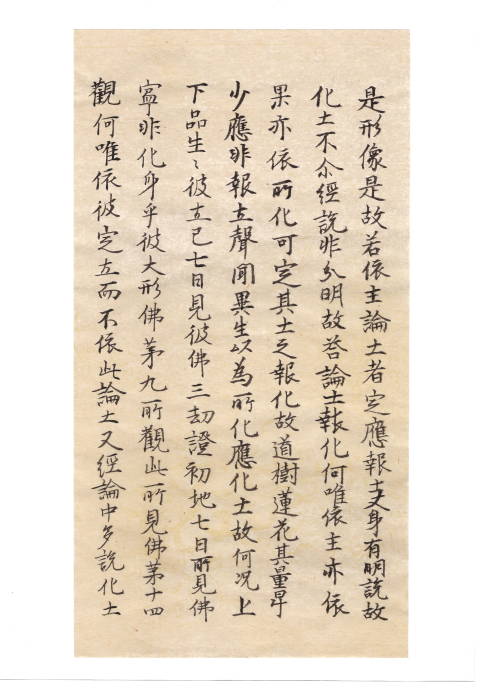 是形像是故若依主論土者定應報土身有明説故
化土不尒經説非分明故荅論土報化何唯依主亦依
果亦依所化可定其土之報化故道樹蓮花其量
少應非報土聲聞異生以為所化應化土故何况上
下品生〻彼土已七日見彼佛三劫證初地七日所見佛
寧非化身乎彼大形佛第九所觀此所見佛第十四
觀何唯依彼定土而不依此論土又經論中多説化土